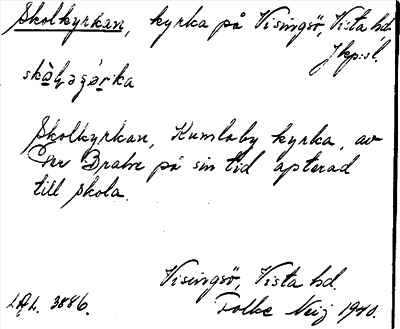 Skolkyrkan, kyrka på Visingsö, Vista hd.
Jkp:sl.
Skolkyrkan, Kumlaby kyrka, av
Per Brahe på sin tid apterad
till skola.
Visingsö, Vista hd.
3886. Folke 1940.